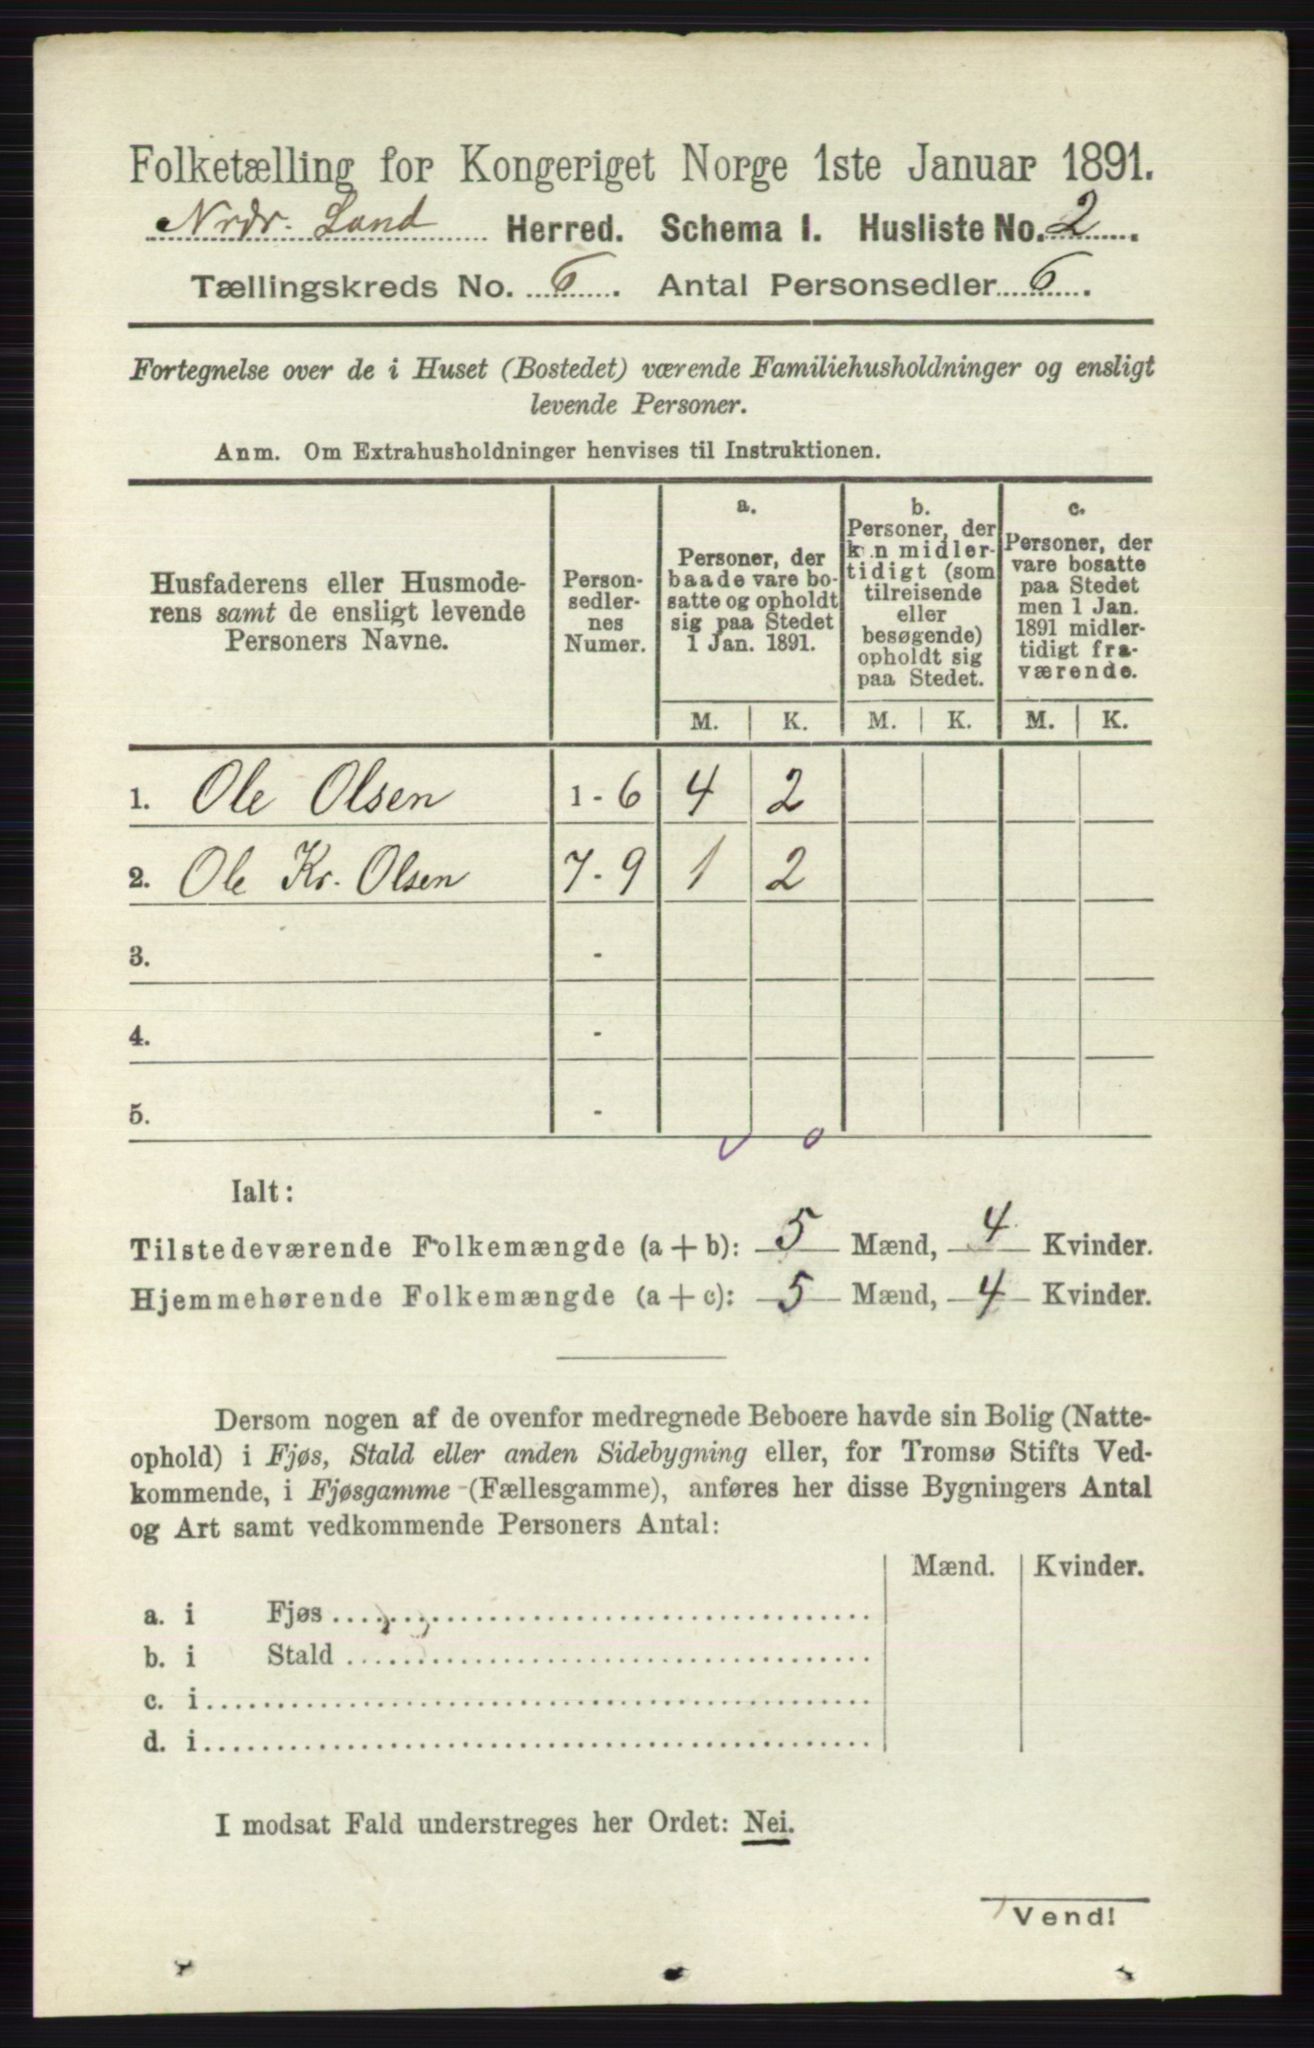 Folketælling for Kongeriget Norge 1ste Januar 1891.
Nrdr. Land Herred. Schema I. Husliste No. 2.
Tællingskreds No. 6. Antal Personsedler 6.
Fortegnelse over de i Huset (Bostedet) værende Familiehusholdninger og ensligt
levende Personer.
Anm. Om Extrahusholdninger henvises til Instruktionen.
Husfaderens eller Husmode-
rens samt de ensligt levende
Personers Navne.
Person-
sedler-
nes
Numer.
a.
Personer, der
baade vare bo-
satte og opholdt
sig paa Stedet
1 Jan. 1891.
b.
Personer, der
kun midler-
tidigt (som
tilreisende
eller
besøgende)
opholdt sig
paa Stedet.
c.
Personer, der
vare bosatte
paa Stedet
men 1 Jan.
1891 midler-
tidigt fra-
værende.
M. K. M. K. M. K.
1. Ole Olsen 1 - 6 4 2
2. Ole Kr. Olsen 7 - 9 1 2
3. -
4. -
5. -
Ialt:
Tilstedeværende Folkemængde (a + b): 5 Mænd, 4 Kvinder.
Hjemmehørende Folkemængde (a + c): 5 Mænd, 4 Kvinder.
Dersom nogen af de ovenfor medregnede Beboere havde sin Bolig (Natte-
ophold) i Fjøs, Stald eller anden Sidebygning eller, for Tromsø Stifts Ved-
kommende, i Fjøsgamme (Fællesgamme), anføres her disse Bygningers Antal
og Art samt vedkommende Personers Antal:
Mænd. Kvinder.
a. i Fjøs
b. i Stald
c. i
d. i
I modsat Fald understreges her Ordet: Nei.
Vend!